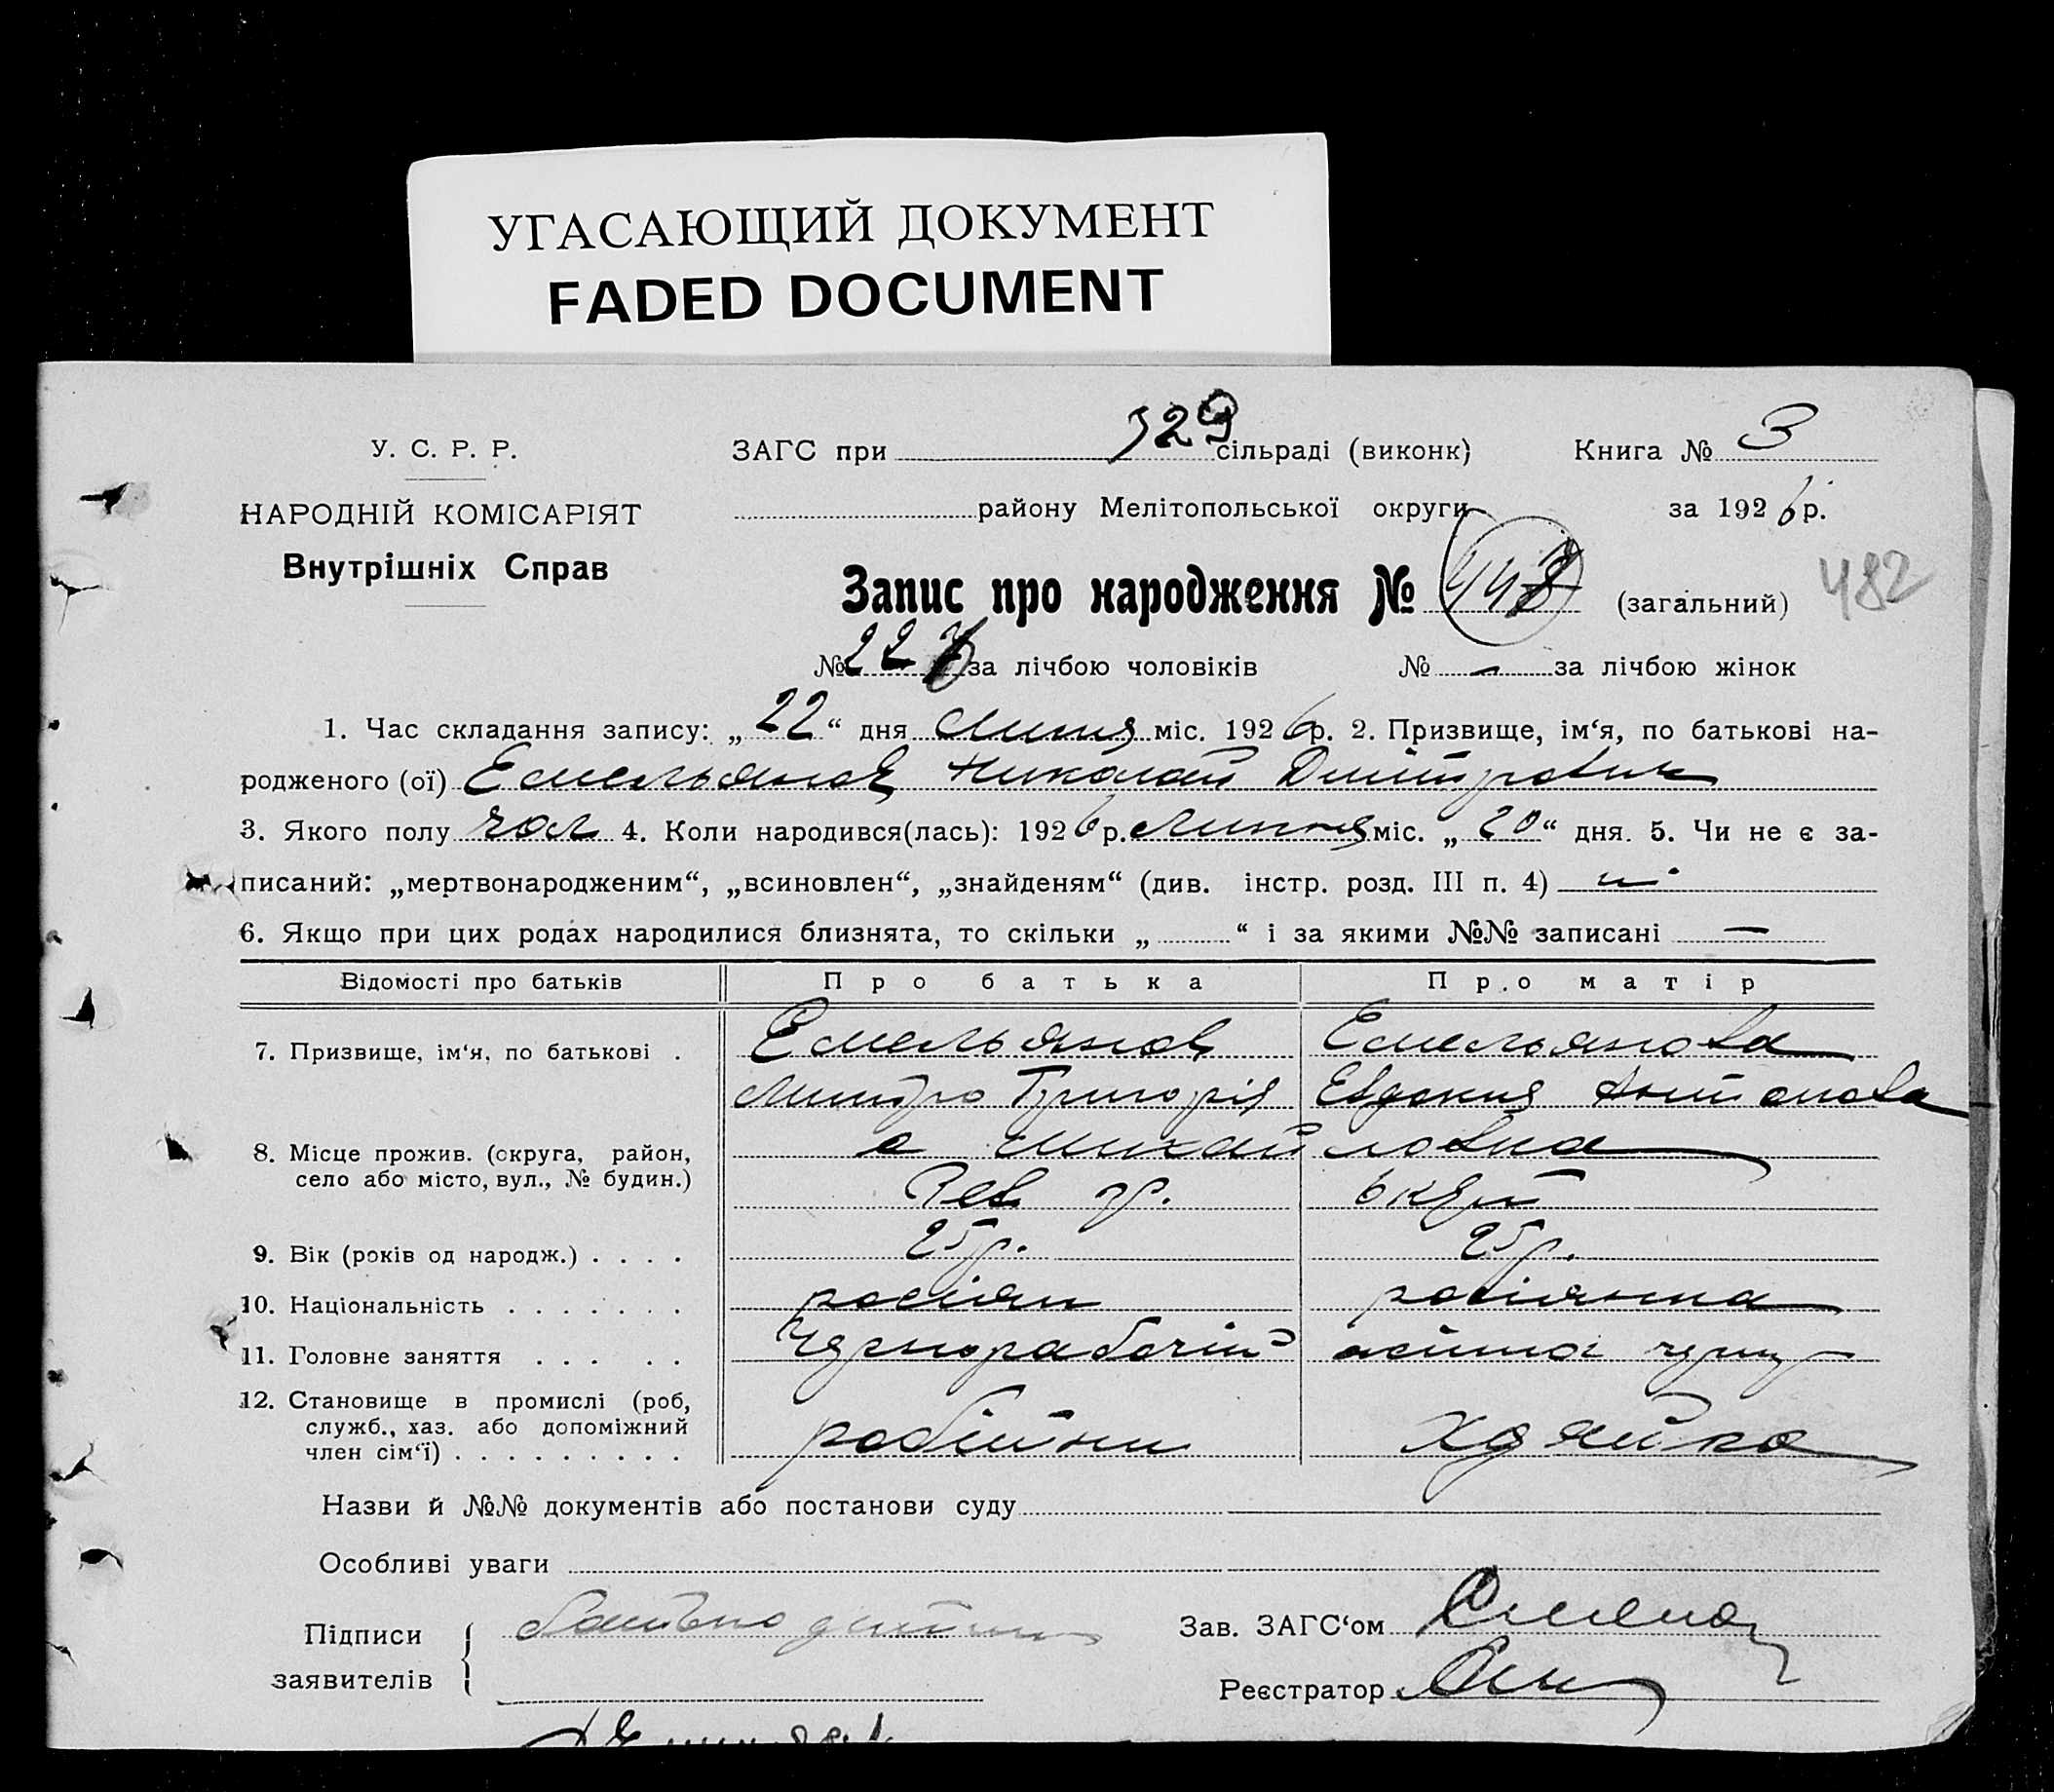 УГАСАЮЩИЙ ДОКУМЕНТ
FADED DOCUMENT
У. С. Р. Р.
НАРОДНІЙ КОМІСАРІЯТ
Внутрішніх Справ
ЗАГС при 329 сільраді (виконк)
Книга № 3
району Мелітопольської округи
за 1926 р.
Запис про народження № (загальний) 482
№ 22 за лічбою чоловіків № — за лічбою жінок
1. Час складання запису: „22“ дня Липня міс. 1926 р. 2. Призвище, ім‘я, по батькові на-
родженого (ої) Емельянов Николай Дмитрович
3. Якого полу чол 4. Коли народився(лась): 1926 р. Липня міс. „20“ дня. 5. Чи не є за-
писаний: „мертвонародженим“, „всиновлен“, „знайденям“ (див. інстр. розд. III п. 4) ні
6. Якщо при цих родах народилися близнята, то скільки „ “ і за якими №№ записані —
Відомості про батьків Про батька Про матір
7. Призвище, ім‘я, по батькові . Емельянов Емельянова
Григорів Евдокия Антонова
8. Місце прожив. (округа, район,
село або місто, вул., № будин.)
9. Вік (років од народж.) . . . . 25 р. 25 р.
10. Національність . . . . . . . росіян росіянка
11. Головне заняття . . . . . Чернорабочий
12. Становище в промислі (роб,
служб., хаз. або допоміжний
член сім‘ї) . . . . . . . . . робітни
Назви й №№ документів або постанови суду
Особливі уваги
Підписи
заявителів
Зав. ЗАГС‘ом
Реєстратор